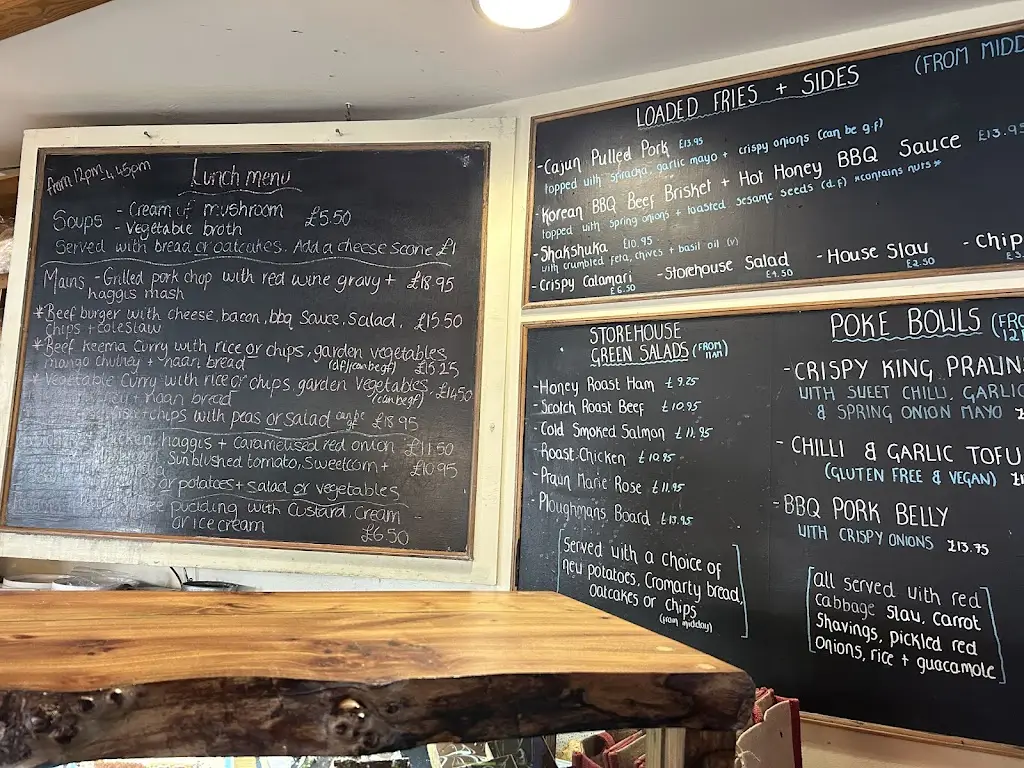 from 12pm - 4.45pm
Lunch menu
Soups - Cream of mushroom £5.50
- Vegetable broth
Served with bread or oatcakes. Add a cheese scone £1
Mains - Grilled pork chop with red wine gravy + £18.95
haggis mash
*Beef burger with cheese, bacon, bbq sauce, salad, £15.50
chips + coleslaw
*Beef keema curry with rice or chips, garden vegetables
mango chutney + naan bread (df) (can be gf) £15.25
*Vegetable curry with rice or chips, garden vegetables, £14.50
+ naan bread (can be gf)
+ chips with peas or salad can be gf £18.95
haggis + caramelised red onion £11.50
Sunblushed tomato, Sweetcorn + £10.95
or potatoes + salad or vegetables
pudding with custard, cream
or ice cream £6.50
LOADED FRIES + SIDES (FROM
- Cajun Pulled Pork £13.95
topped with sriracha, garlic mayo + crispy onions (can be g.f)
- Korean BBQ Beef Brisket + Hot Honey BBQ Sauce £13.95
topped with spring onions + toasted sesame seeds (d.f) *contains nuts*
- Shakshuka £10.95
with crumbled feta, chives + basil oil (v)
- Crispy Calamari £6.50
- Storehouse Salad £4.50
- House Slaw £2.50
- Chip
STOREHOUSE
GREEN SALADS (FROM 11AM)
- Honey Roast Ham £9.25
- Scotch Roast Beef £10.95
- Cold Smoked Salmon £11.95
- Roast Chicken £10.95
- Prawn Marie Rose £11.95
- Ploughmans Board £13.95
Served with a choice of
new potatoes, Cromarty bread,
oatcakes or chips
(from midday)
POKE BOWLS
- CRISPY KING PRAWN
WITH SWEET CHILLI, GARLIC
& SPRING ONION MAYO
- CHILLI & GARLIC TOFU
(GLUTEN FREE & VEGAN)
- BBQ PORK BELLY
WITH CRISPY ONIONS £13.75
all served with red
cabbage slaw, carrot
shavings, pickled red
onions, rice + guacamole